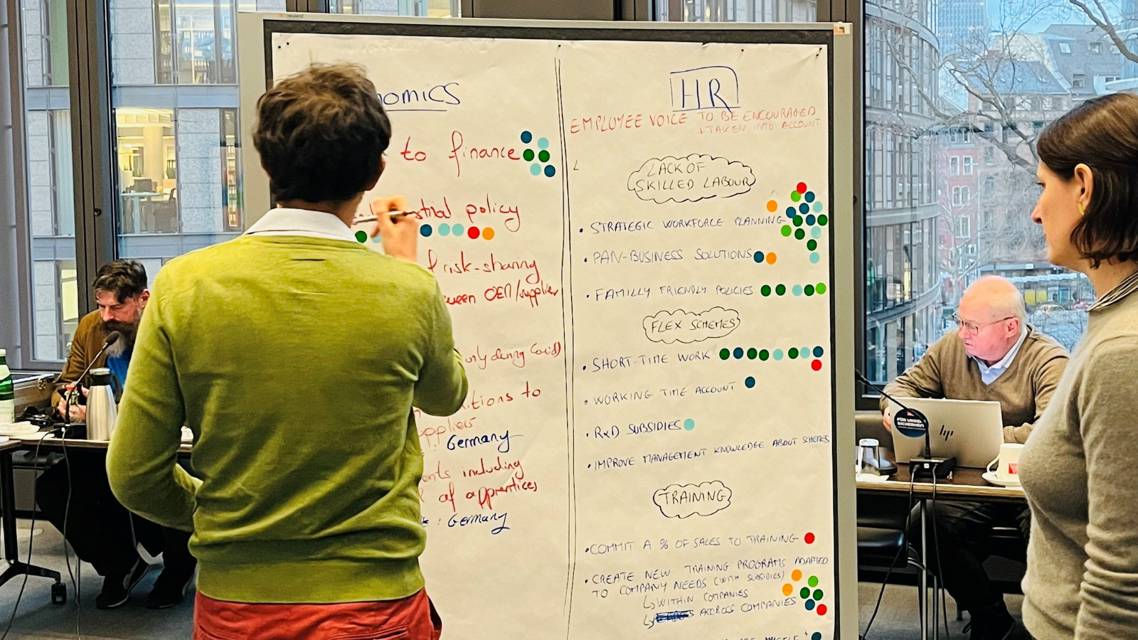 OMICS
to finance
policy
f risk-sharing
ween OEM/supplier
only during Covid)
itions to
Germany
ents including
of apprentices
: Germany
HR
EMPLOYEE VOICE TO BE ENCOURAGED
+ TAKEN INTO ACCOUNT
LACK OF
SKILLED LABOUR
• STRATEGIC WORKFORCE PLANNING
• PAN-BUSINESS SOLUTIONS
• FAMILLY FRIENDLY POLICIES
FLEX SCHEMES
• SHORT-TIME WORK
• WORKING TIME ACCOUNT
• R&D SUBSIDIES
• IMPROVE MANAGEMENT KNOWLEDGE ABOUT SCHEMES
TRAINING
• COMMIT A % OF SALES TO TRAINING
• CREATE NEW TRAINING PROGRAMS ADAPTED
TO COMPANY NEEDS (WITH SUBSIDIES)
↳ WITHIN COMPANIES
↳ ACROSS COMPANIES
hp